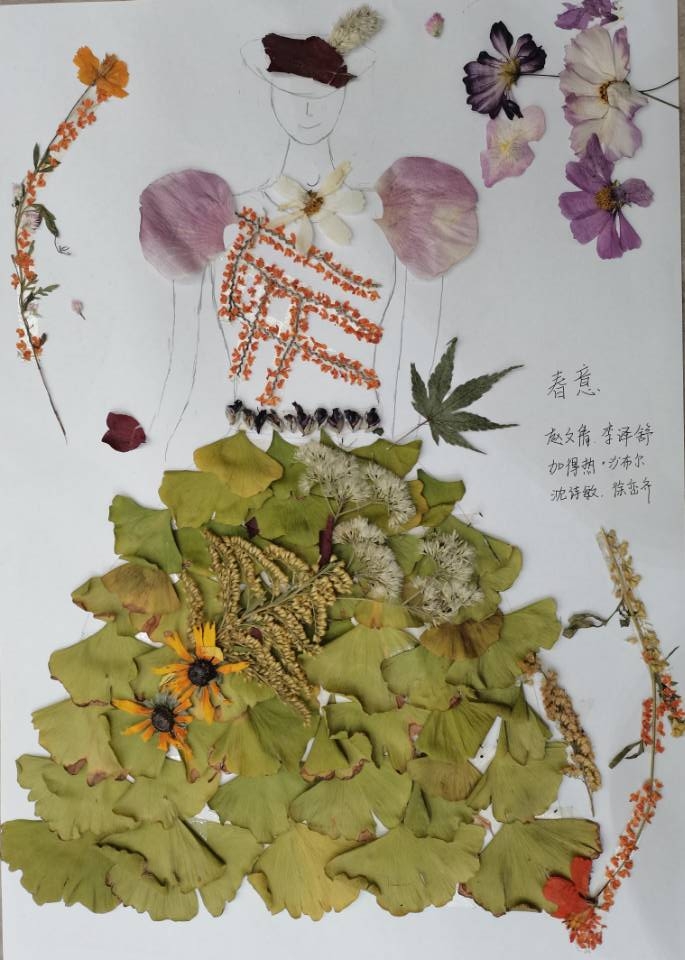 春意
赵文脩 李泽舒
加得热·沙布尔
沈诗敏 徐峦齐